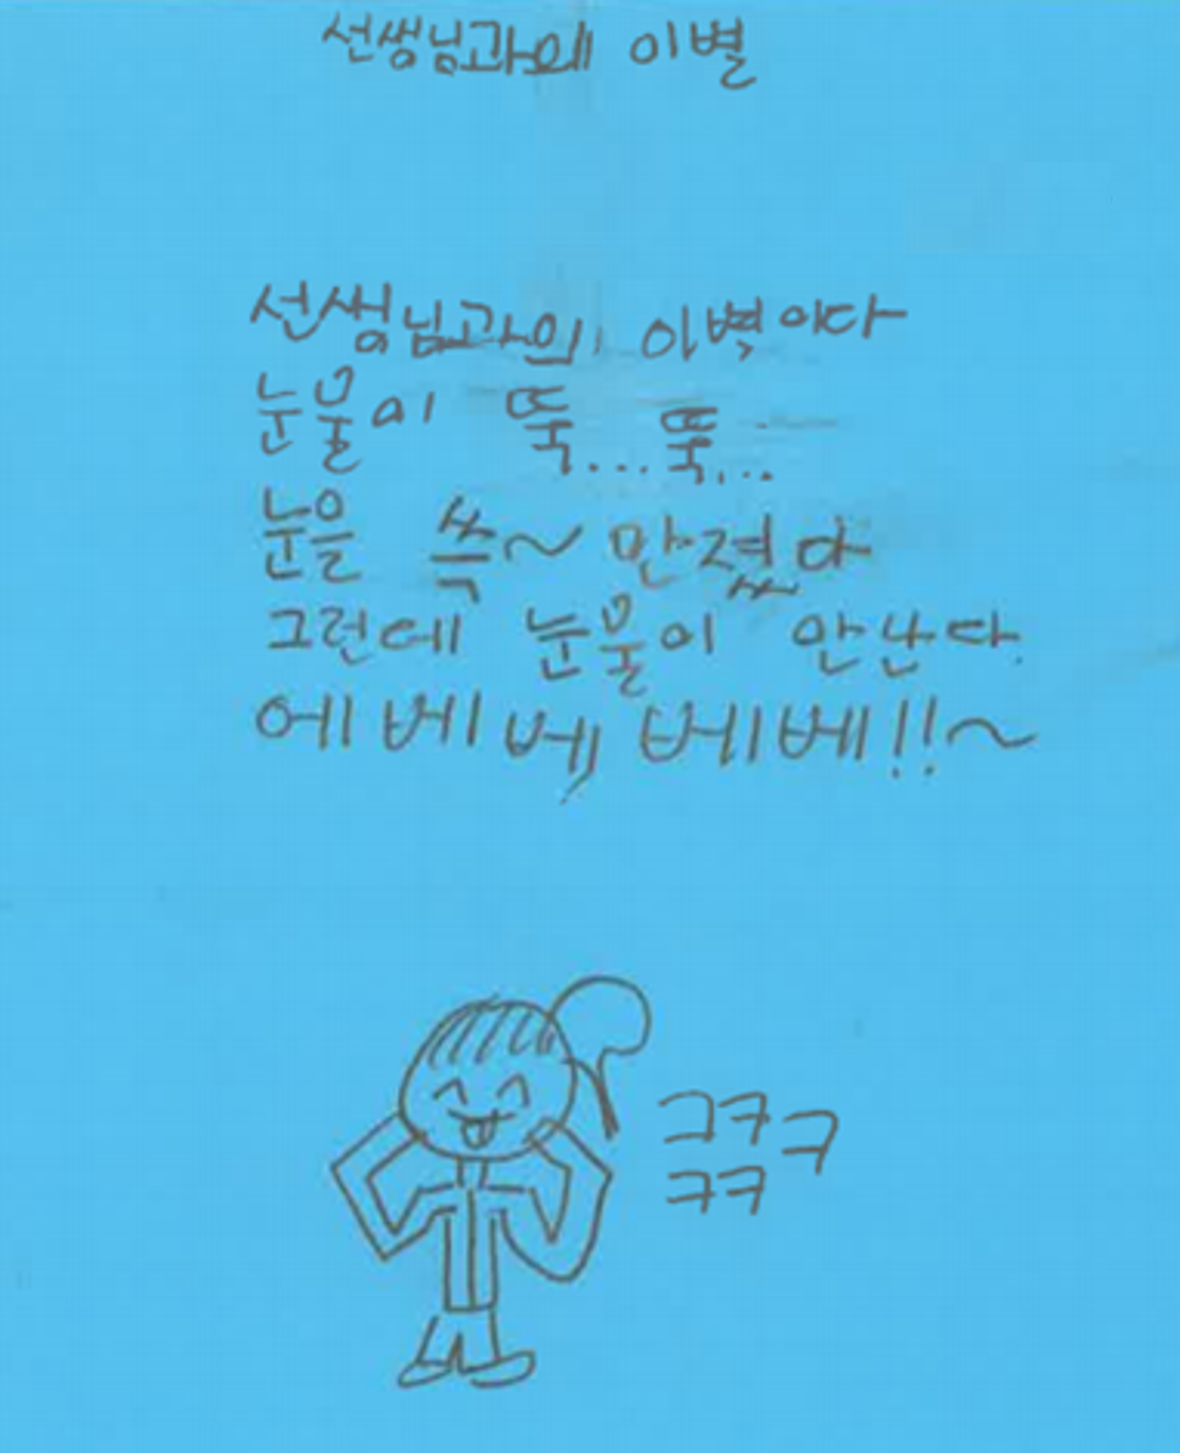 선쌩님과에 이별
선쌩님과의 이별이다
눈물이 뚝...뚝...
눈을 쓱~ 만졌다
그런데 눈물이 안난다.
에베베, 베베!!~
그ㅋㅋ
ㅋㅋ